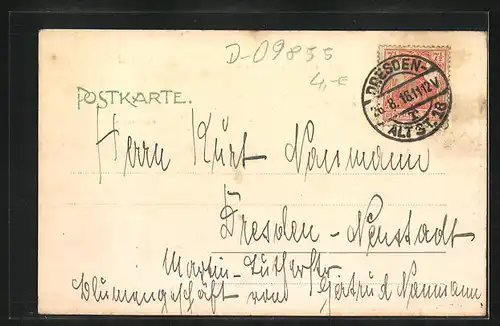 D-09855
4,-€
7½
POSTKARTE.
DRESDEN-
26.8.18.11-12V
c
ALTST. 18
Herrn Kurt Naumann
Dresden-Neustadt
Martin-Lutherstr
Blumengeschäft von Gertrud Naumann.